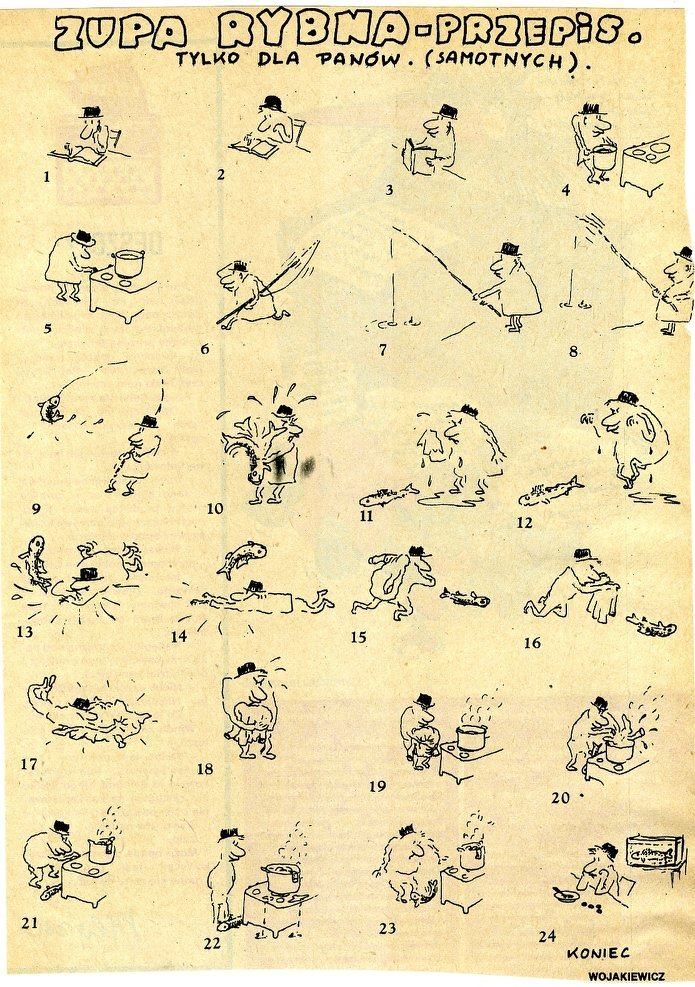 ZUPA RYBNA-PRZEPIS.
TYLKO DLA PANÓW. (SAMOTNYCH).
1
2
3
4
5
6
7
8
9
10
11
12
13
14
15
16
17
18
19
20
21
22
23
24
KONIEC
WOJAKIEWICZ